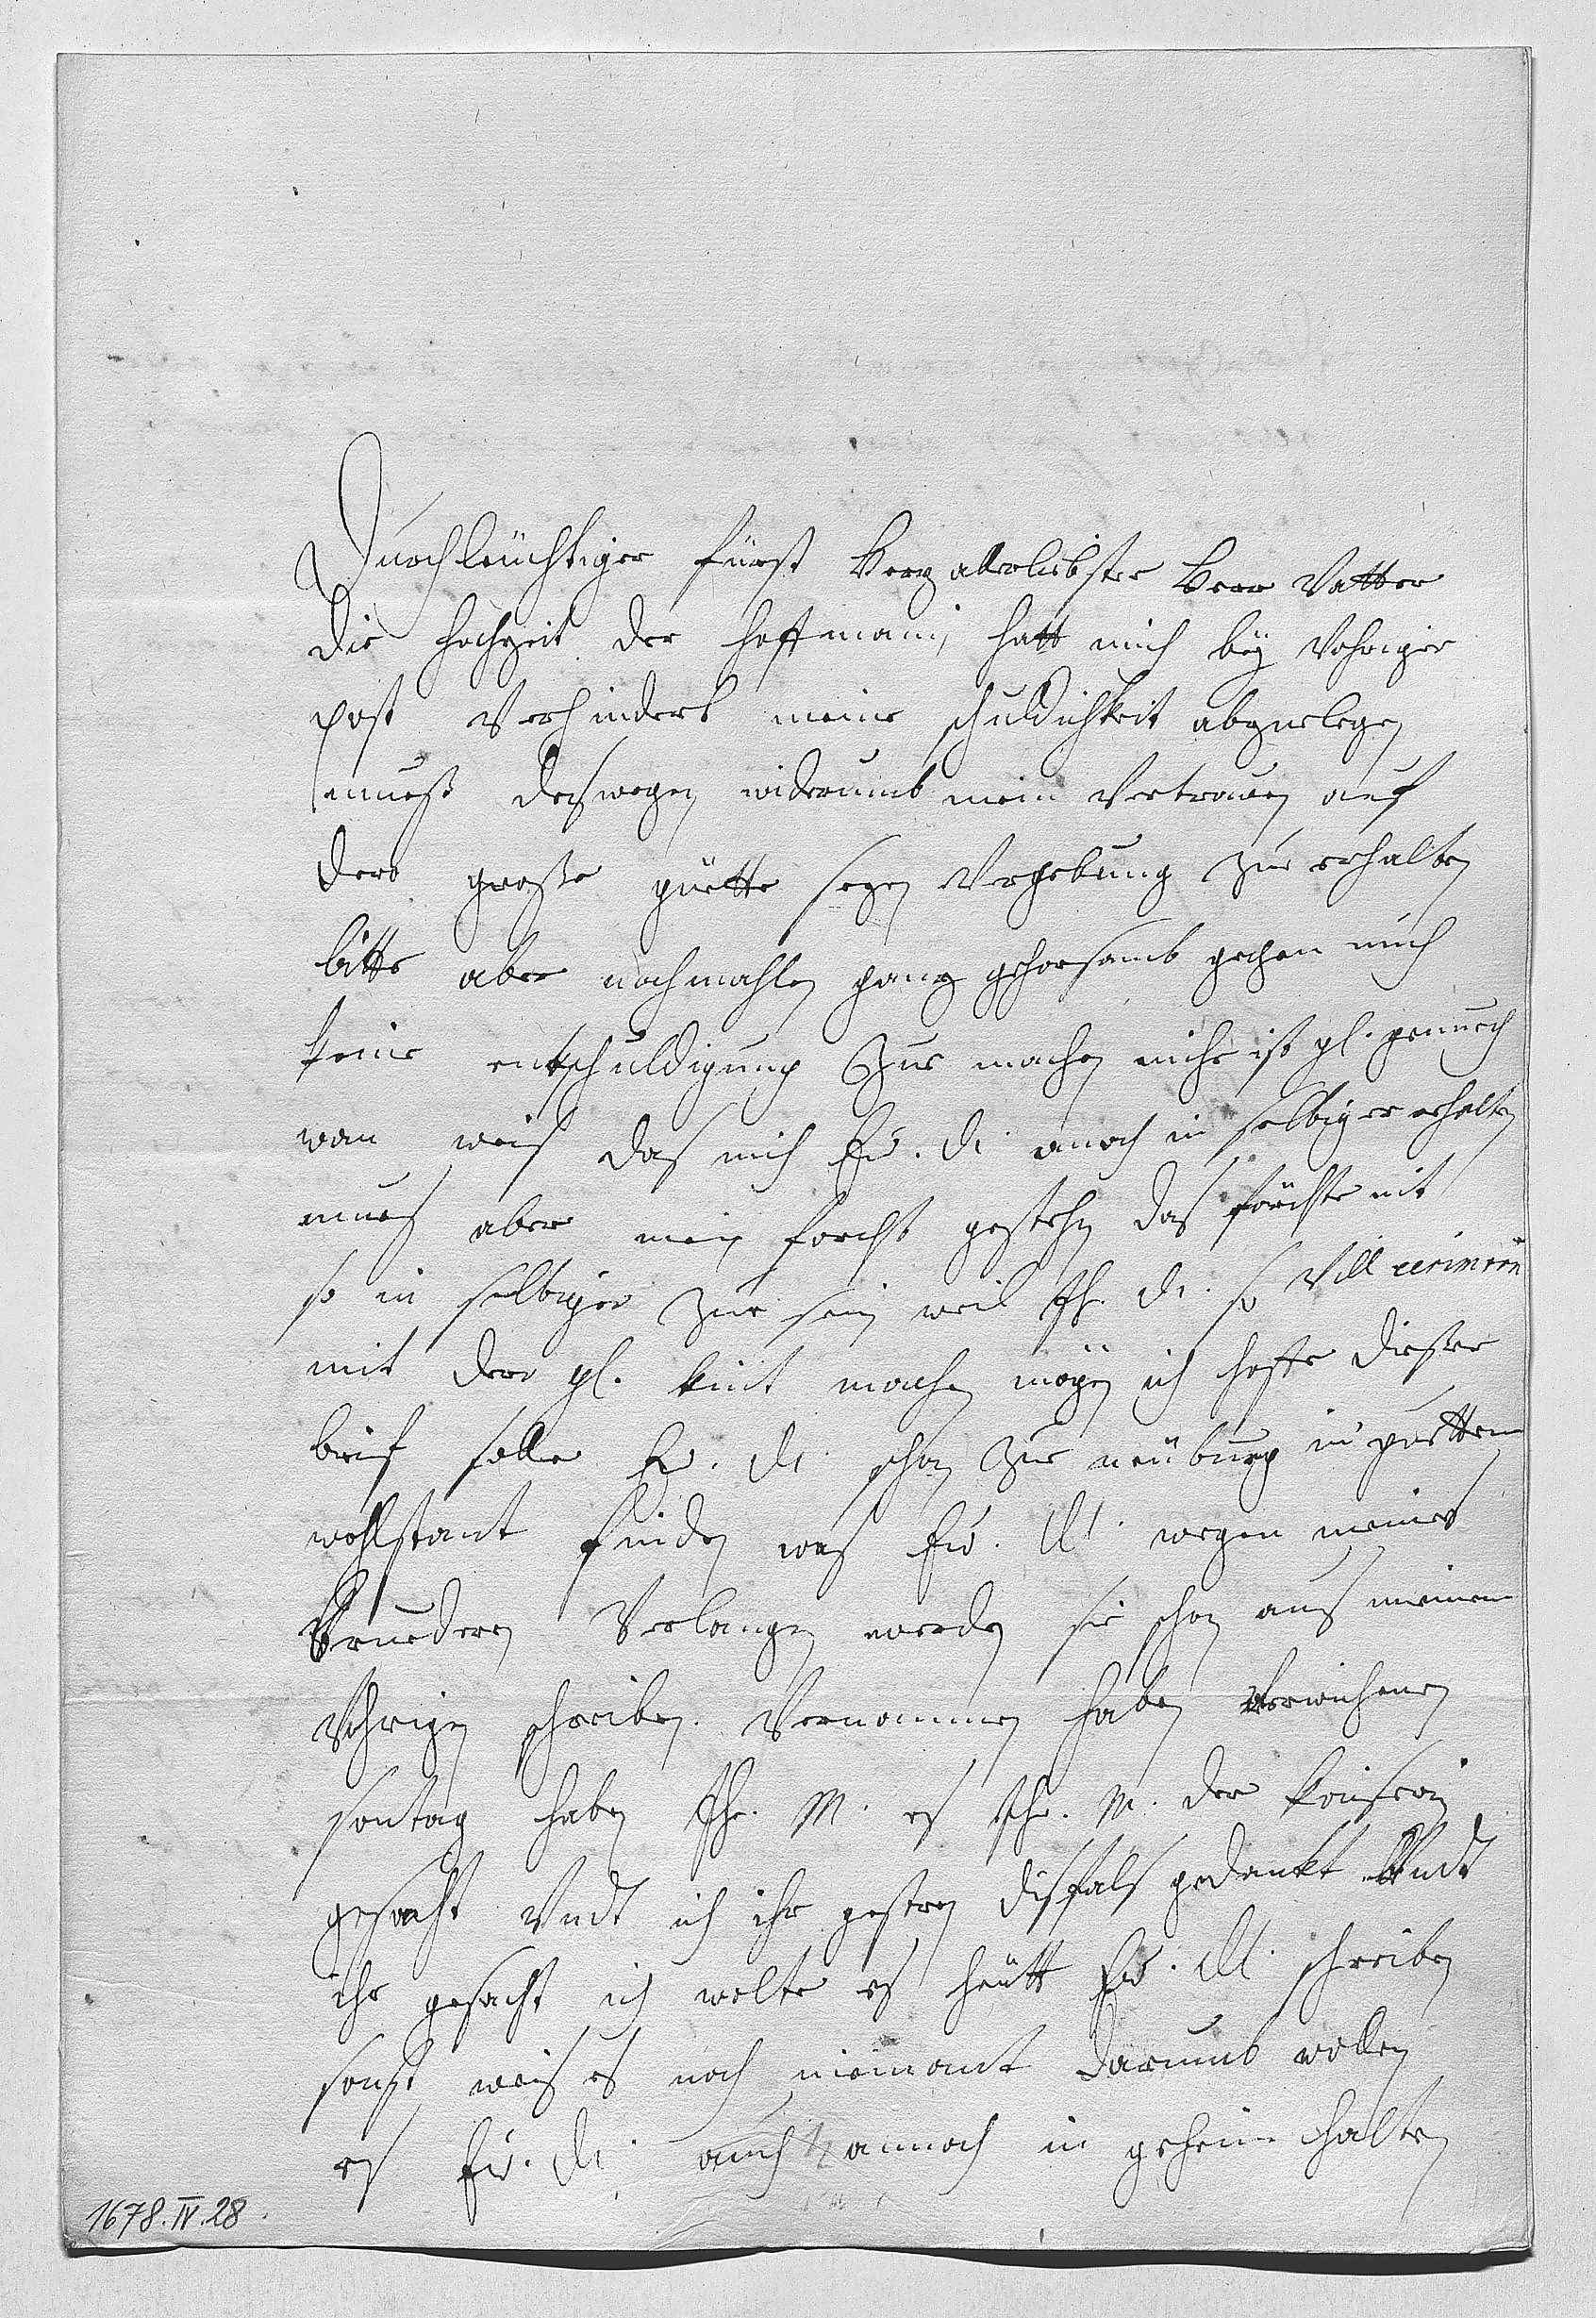 Durchleüchtiger fürst herz allerliebster herr Vatter
die hochzeit der hoffmanin, hatt mich beÿ Vohriger
post Verhindert meine schuldichkeit abzuelegen
mueß deswegen widerumb mein Vertrauen auf
dero große güette sezen Vergebung zue erhalten
bitte aber nochmahlen ganz gehorsamb gechen mich
keine entschuldigung zue machen mihr ist gl. genuech
wan weis das mich Ew. dl. anoch in selbiger erhalten
mues aber mein forcht gestehen das förchte nit
so in selbiger zue sein weil Ih. dl. so Vill cerimoni
mit dero gl. kint machen mögen ich hoffe dießer
brif solle Ew. dl. schon zue neüburg in guettem
wohlstant finden was Ew. dl. wegen meines
bruederen Verlangen werden sie schon aus meinem
Vohrigen schreiben Vernommen haben verwichenen
sontag haben Ih. M. es Ihr. M. der keiserin
gesacht Vndt ich ihr gesteren disfals gedankt Vndt
ihr gesacht ich wolte es heütt Ew. dl. schreiben
sonst weis es noch niemant darumb wollen
es Ew. dl. auch annoch in geheim halten
1678. IV. 28.